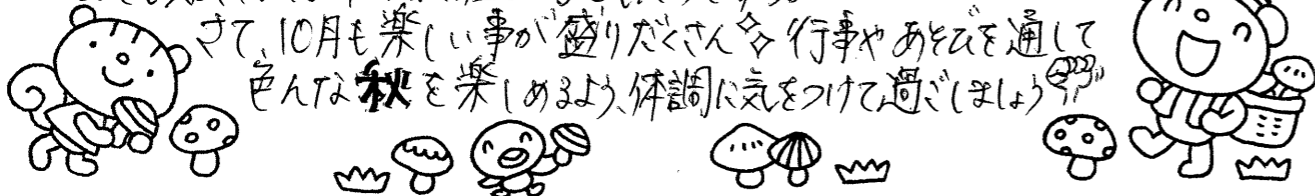 さて、10月も楽しい事が盛りだくさん✨行事やあそびを通して
色んな秋を楽しめるよう、体調に気をつけて過ごしましょう